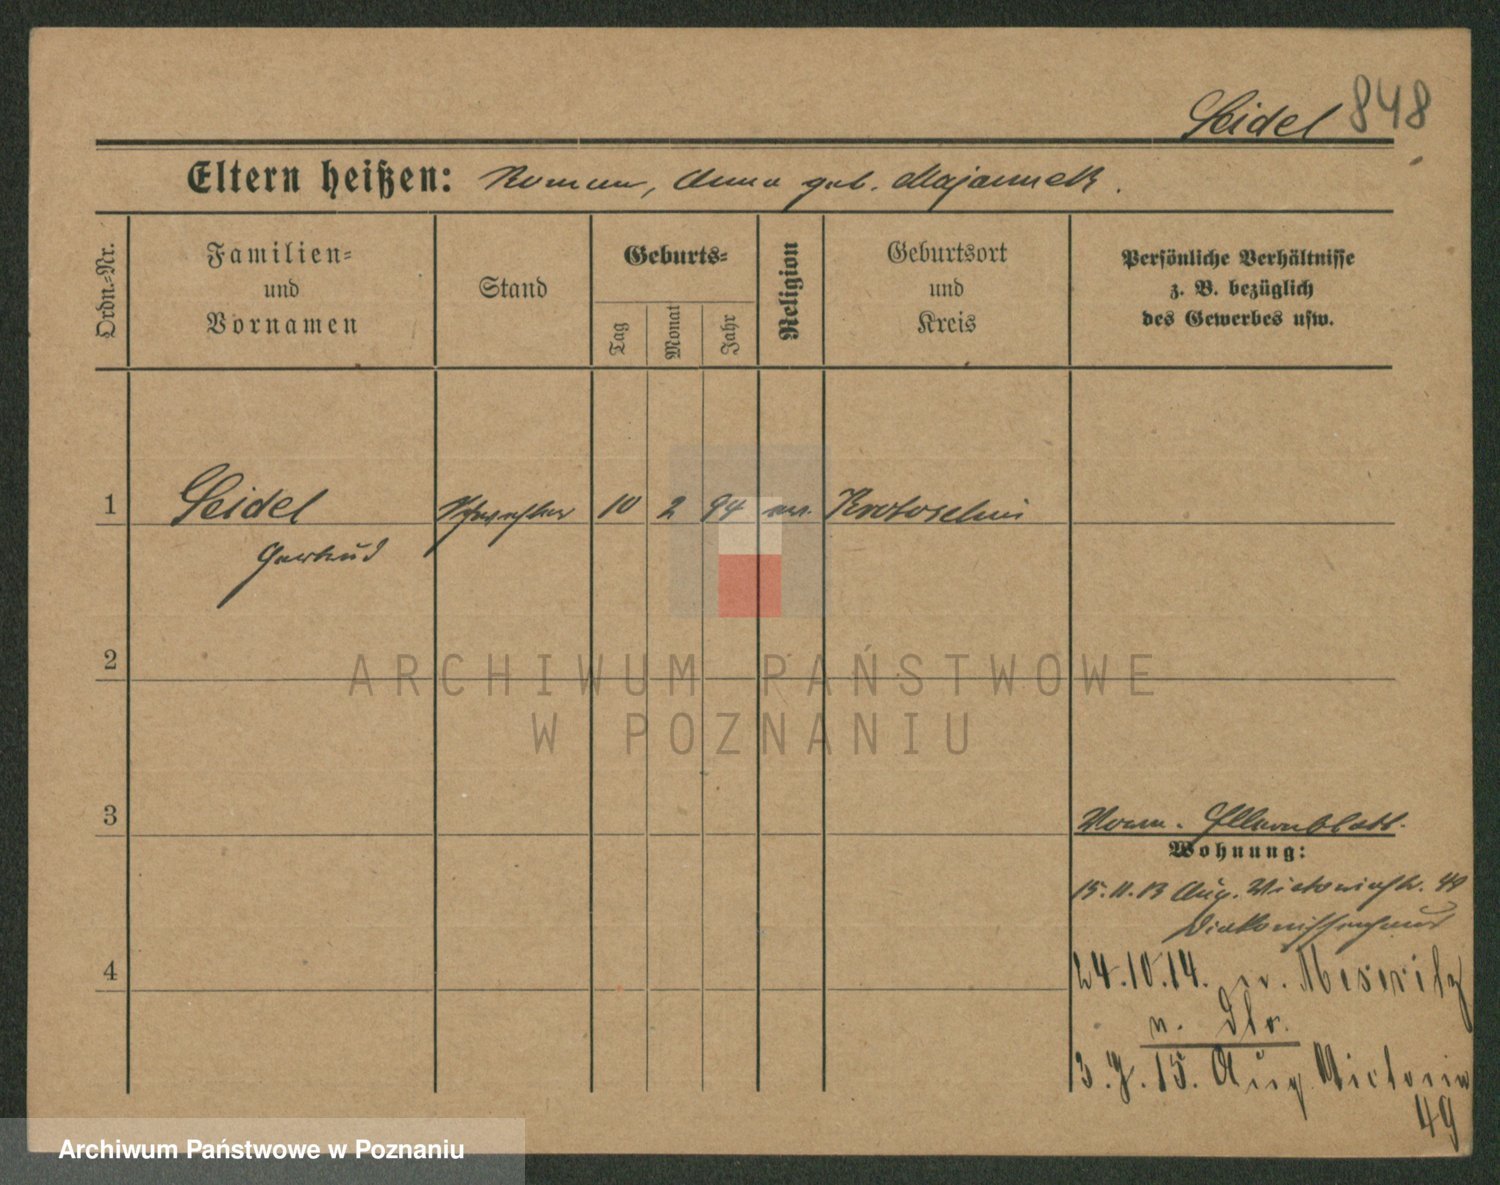 Seidel 848
Eltern heißen: Roman, Anna geb. Majannek.
Ordn.-Nr.
Familien-
und
Vornamen
Stand
Geburts-
Tag
Monat
Jahr
Religion
Geburtsort
und
Kreis
Persönliche Verhältnisse
z. B. bezüglich
des Gewerbes usw.
1 Seidel Schwester 10 2 94 ev. Krotoschin
Gertrud
2
ARCHIWUM PAŃSTWOWE
W POZNANIU
3
Wohnung:
15.11.13 Aug. Victoriastr. 49
Diakonissenhaus
4
24.10.14. v. Meseritz
n.
3. 15. Aug Victoria
49
Archiwum Państwowe w Poznaniu